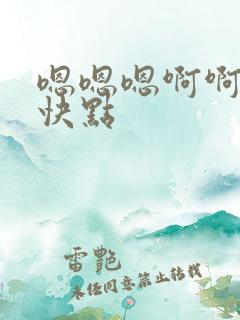 嗯嗯嗯啊啊
快點
雷艷
未经同意禁止转载